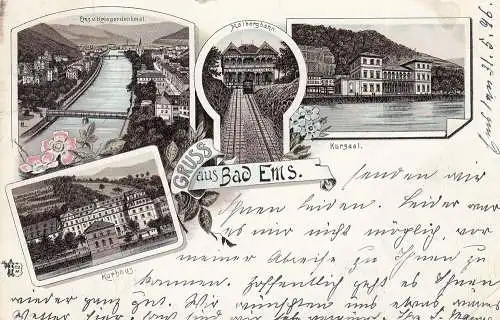 Ems v. Kriegerdenkmal.
Malbergbahn.
Kursaal.
GRUSS
aus BAD EMS.
Kurhaus.
Ems den 21.5.96.
senden wir
Ihnen beiden. Leider war
es mir nicht möglich, vor
meiner Abreise zu Ihnen zu
kommen. Hoffentlich geht es Ihnen
wieder ganz gut. Wir wünschten uns etwas
Wetter hier,